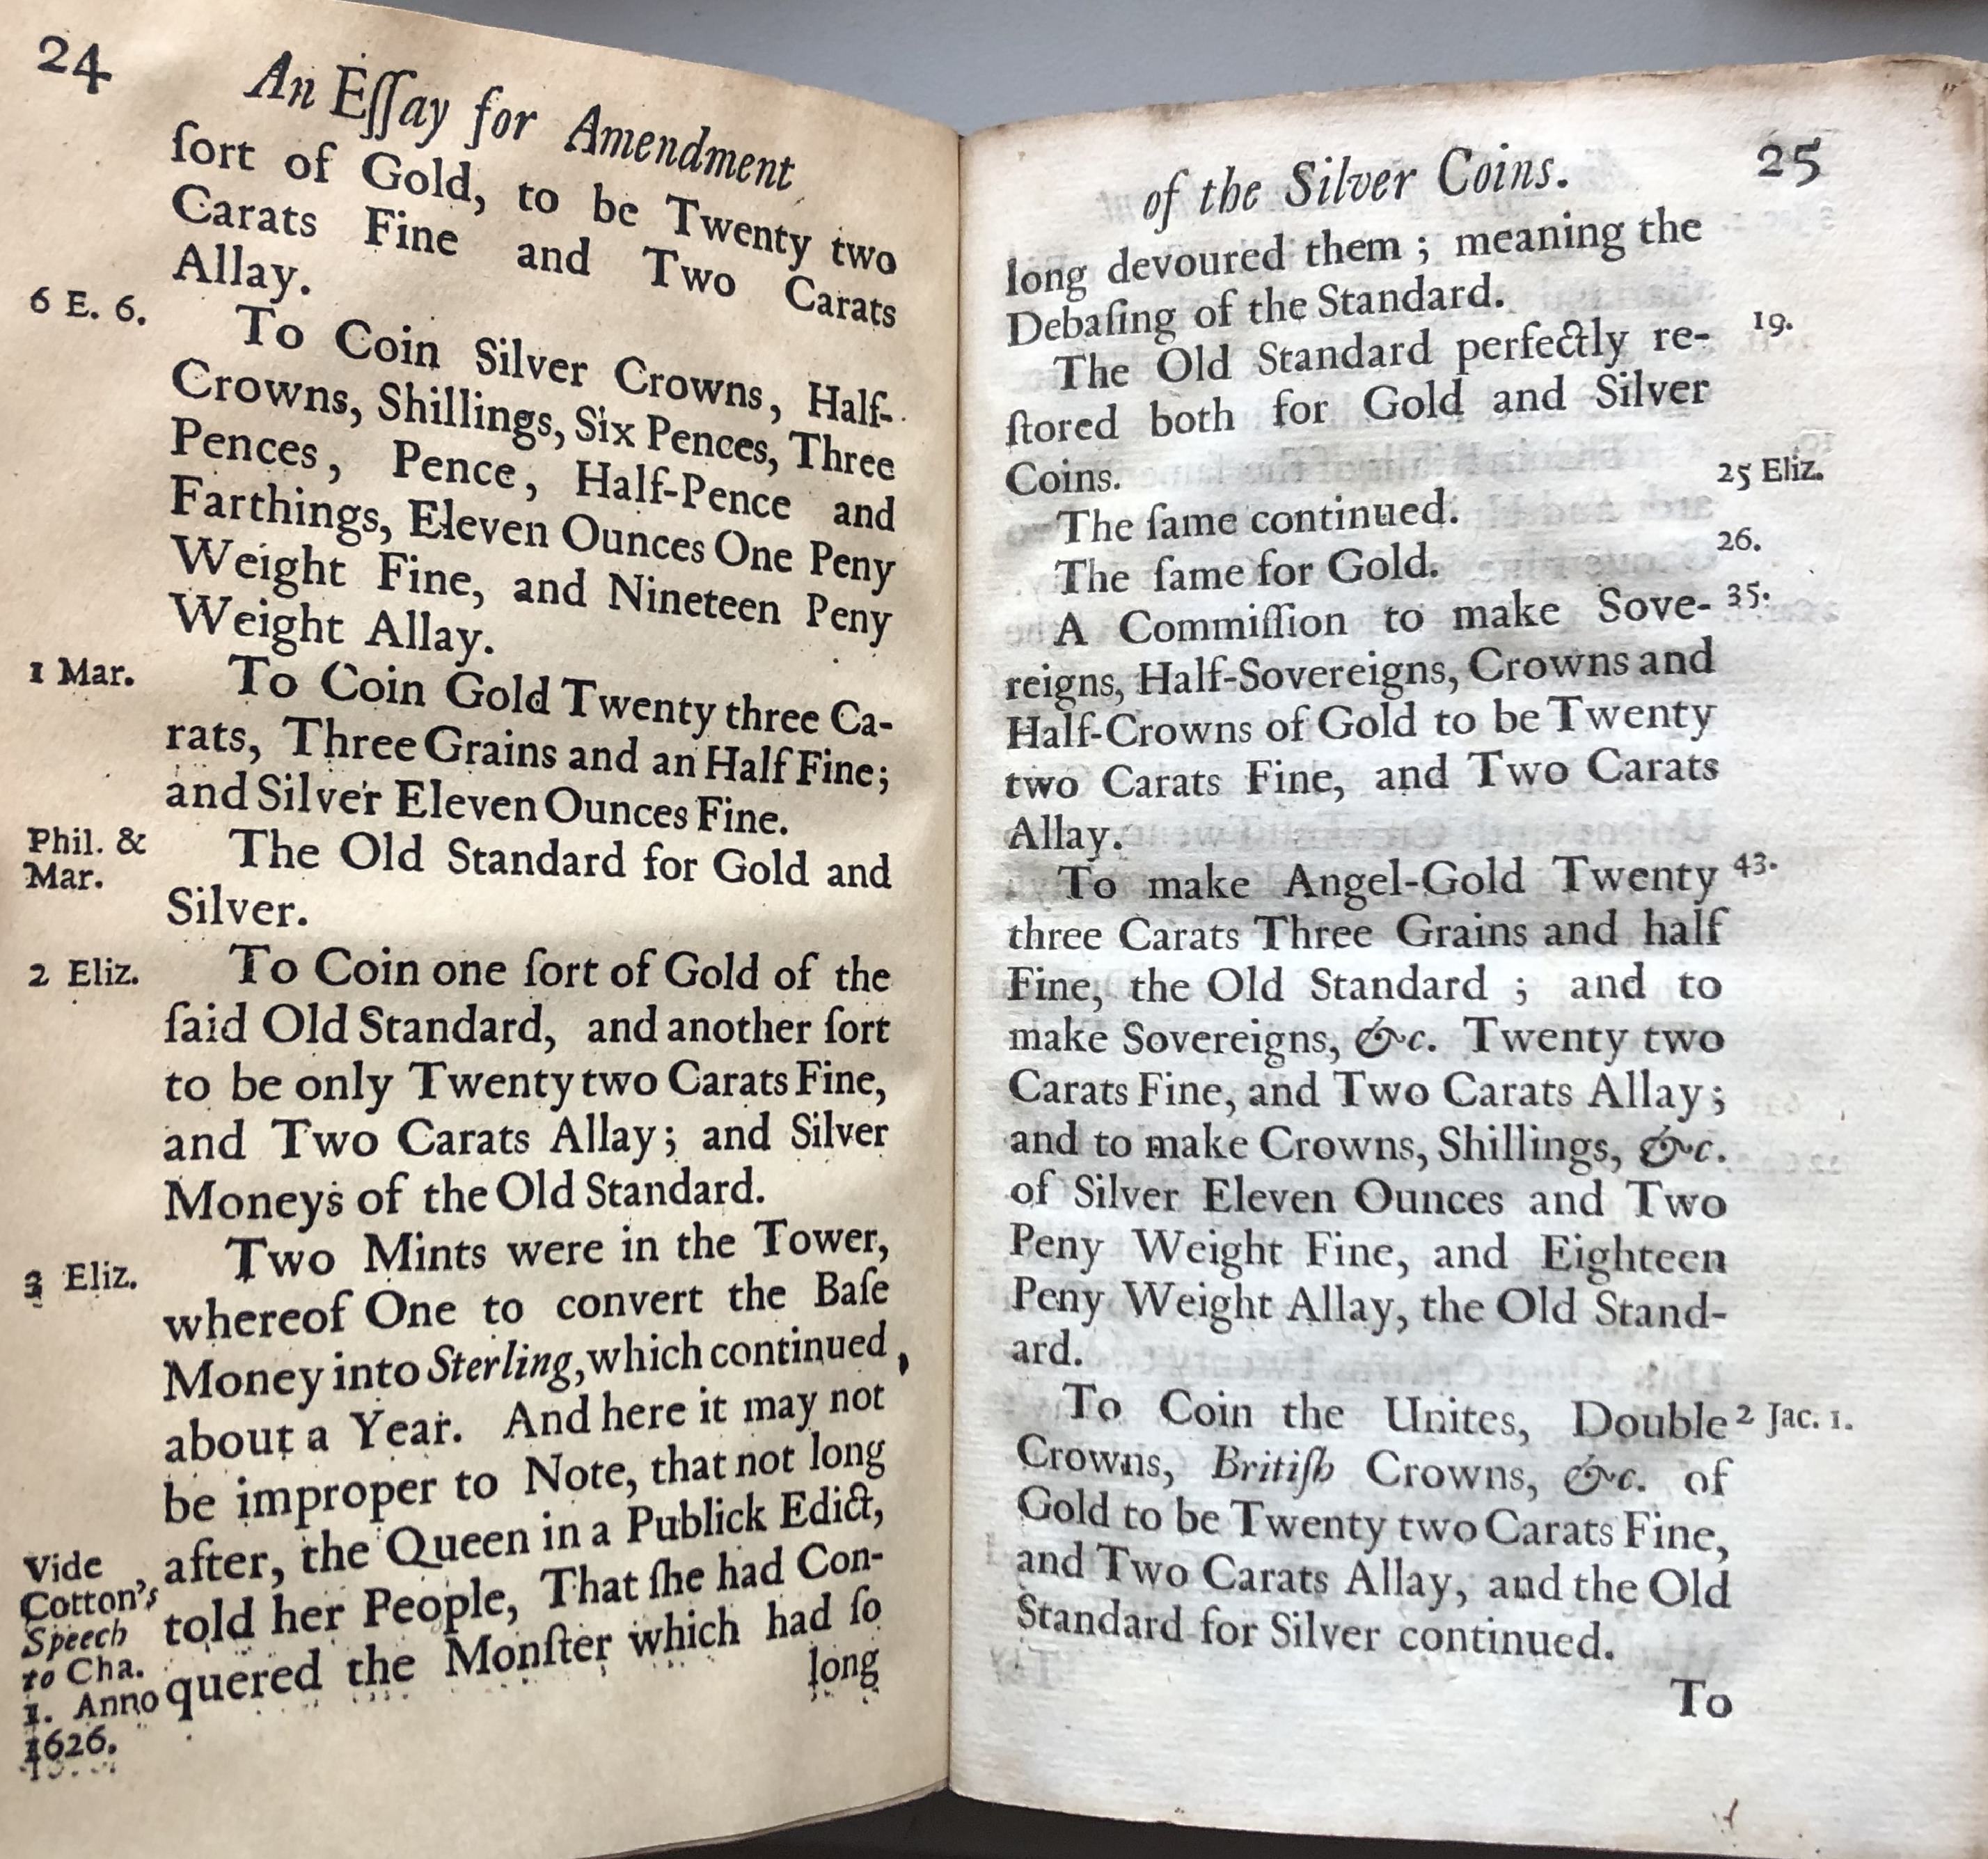 24
An Eſſay for Amendment
ſort of Gold, to be Twenty two
Carats Fine and Two Carats
Allay.
6 E. 6.
To Coin Silver Crowns, Half-
Crowns, Shillings, Six Pences, Three
Pences, Pence, Half-Pence and
Farthings, Eleven Ounces One Peny
Weight Fine, and Nineteen Peny
Weight Allay.
1 Mar.
To Coin Gold Twenty three Ca-
rats, Three Grains and an Half Fine;
and Silver Eleven Ounces Fine.
Phil. &
Mar.
The Old Standard for Gold and
Silver.
2 Eliz.
To Coin one ſort of Gold of the
ſaid Old Standard, and another ſort
to be only Twenty two Carats Fine,
and Two Carats Allay; and Silver
Moneys of the Old Standard.
3 Eliz.
Two Mints were in the Tower,
whereof One to convert the Baſe
Money into Sterling, which continued
about a Year. And here it may not
be improper to Note, that not long
after, the Queen in a Publick Edict,
told her People, That ſhe had Con-
quered the Monſter which had ſo
Vide
Cotton's
Speech
to Cha.
1. Anno
1626.
long
of the Silver Coins.
25
long devoured them; meaning the
Debaſing of the Standard.
19.
The Old Standard perfectly re-
ſtored both for Gold and Silver
Coins.
25 Eliz.
The ſame continued.
26.
The ſame for Gold.
35.
A Commiſſion to make Sove-
reigns, Half-Sovereigns, Crowns and
Half-Crowns of Gold to be Twenty
two Carats Fine, and Two Carats
Allay.
43.
To make Angel-Gold Twenty
three Carats Three Grains and half
Fine, the Old Standard; and to
make Sovereigns, &c. Twenty two
Carats Fine, and Two Carats Allay;
and to make Crowns, Shillings, &c.
of Silver Eleven Ounces and Two
Peny Weight Fine, and Eighteen
Peny Weight Allay, the Old Stand-
ard.
2 Jac. 1.
To Coin the Unites, Double
Crowns, Britiſh Crowns, &c. of
Gold to be Twenty two Carats Fine,
and Two Carats Allay, and the Old
Standard for Silver continued.
To